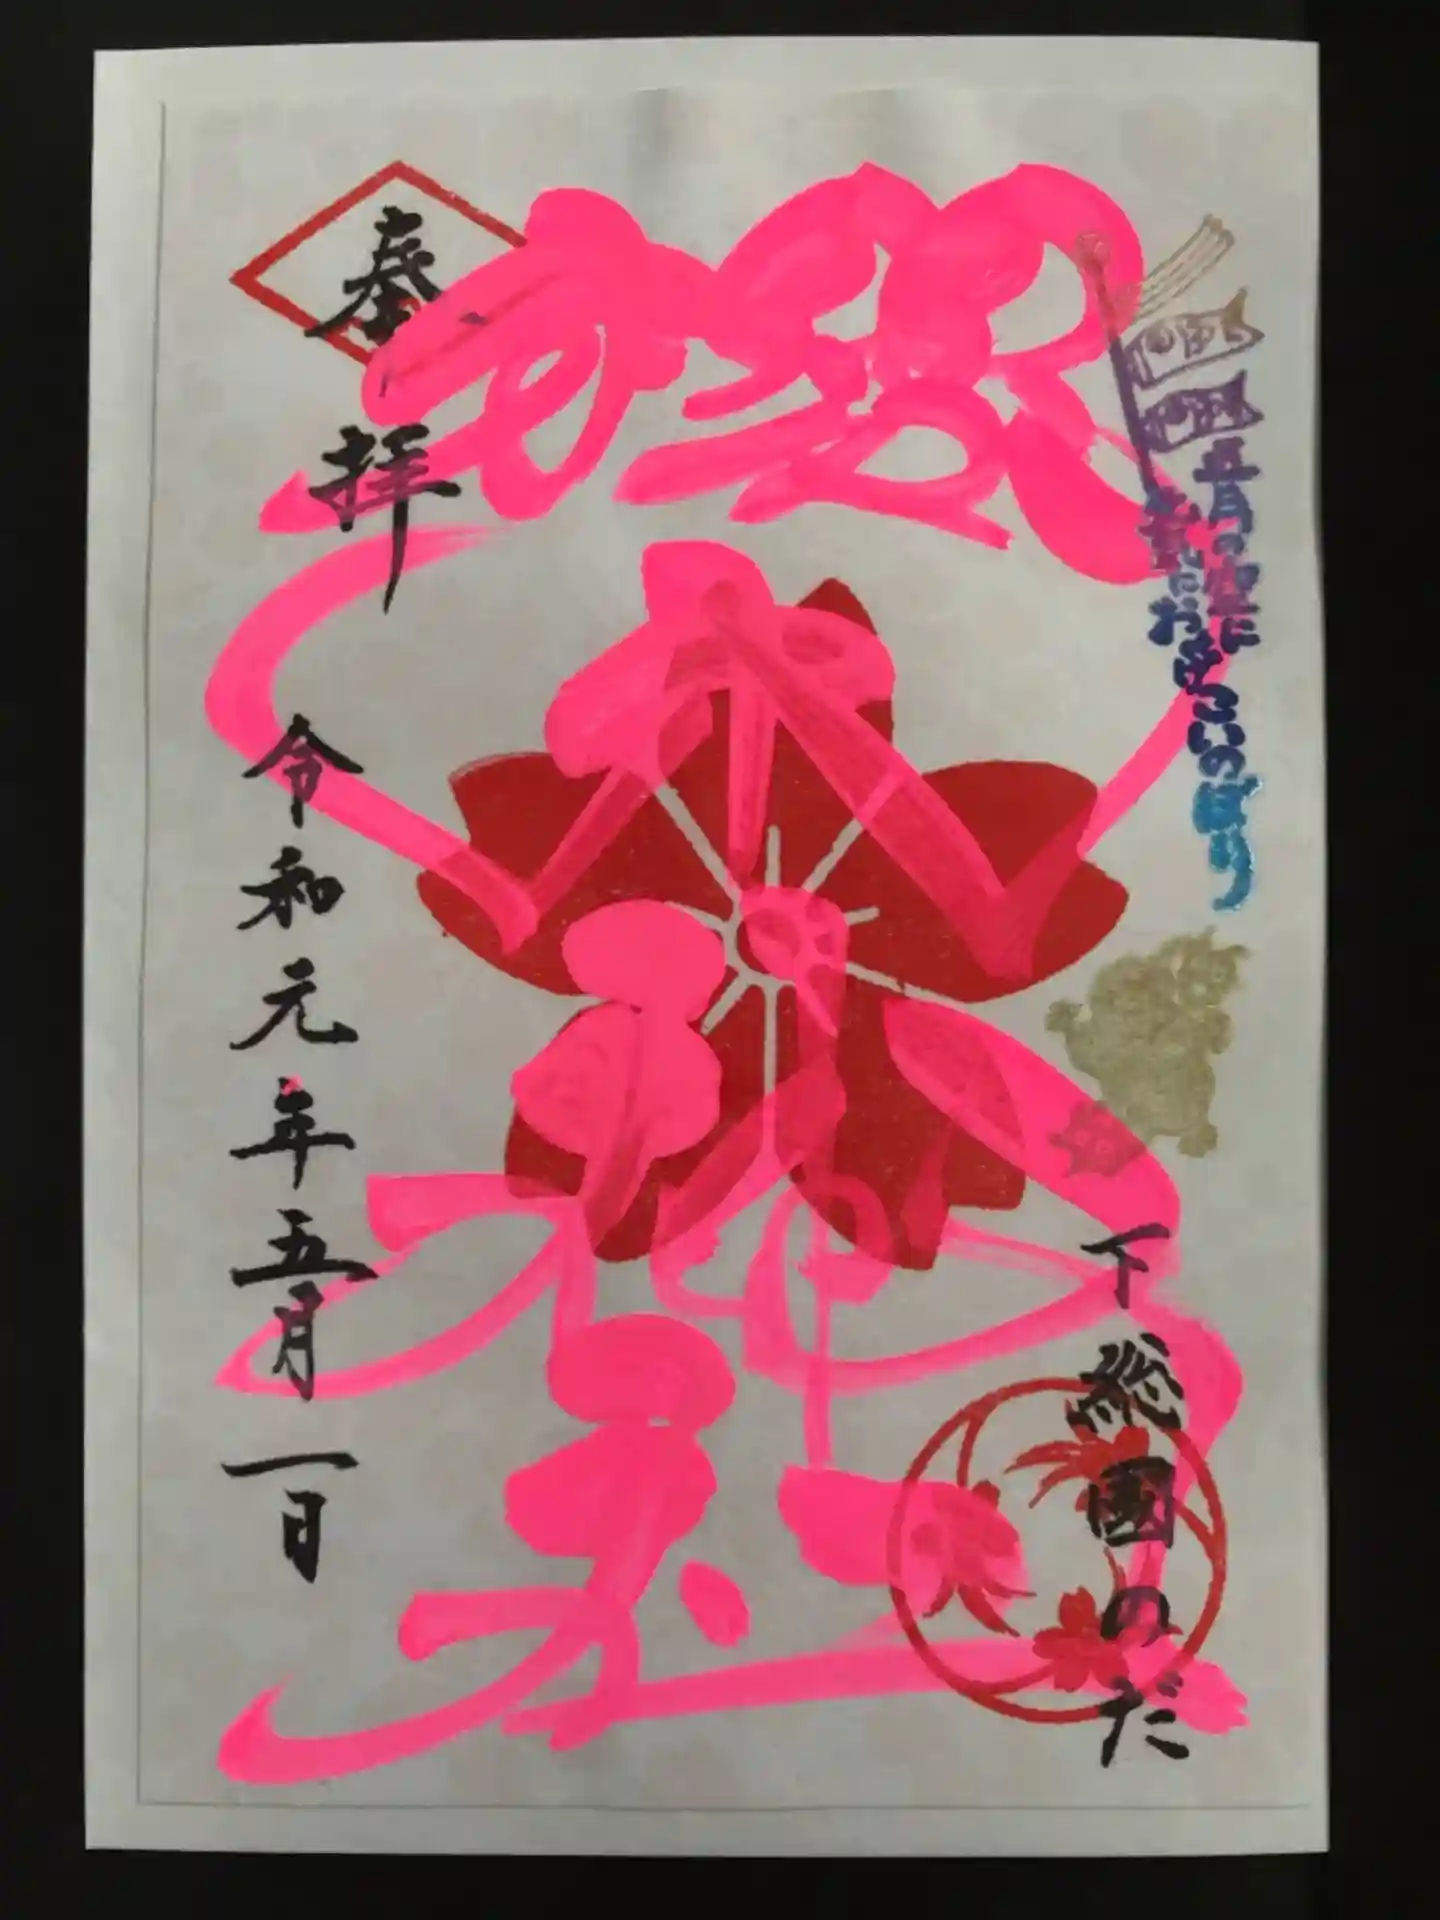 下総國のだ
五月の空に
元気におよぐこいのぼり
櫻木神社
奉拝
令和元年五月一日